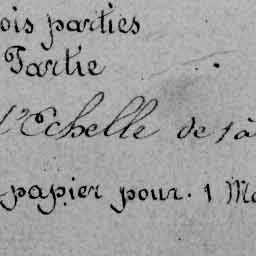 ois parties
Partie
l'Echelle de 1 à
papier pour. 1 M